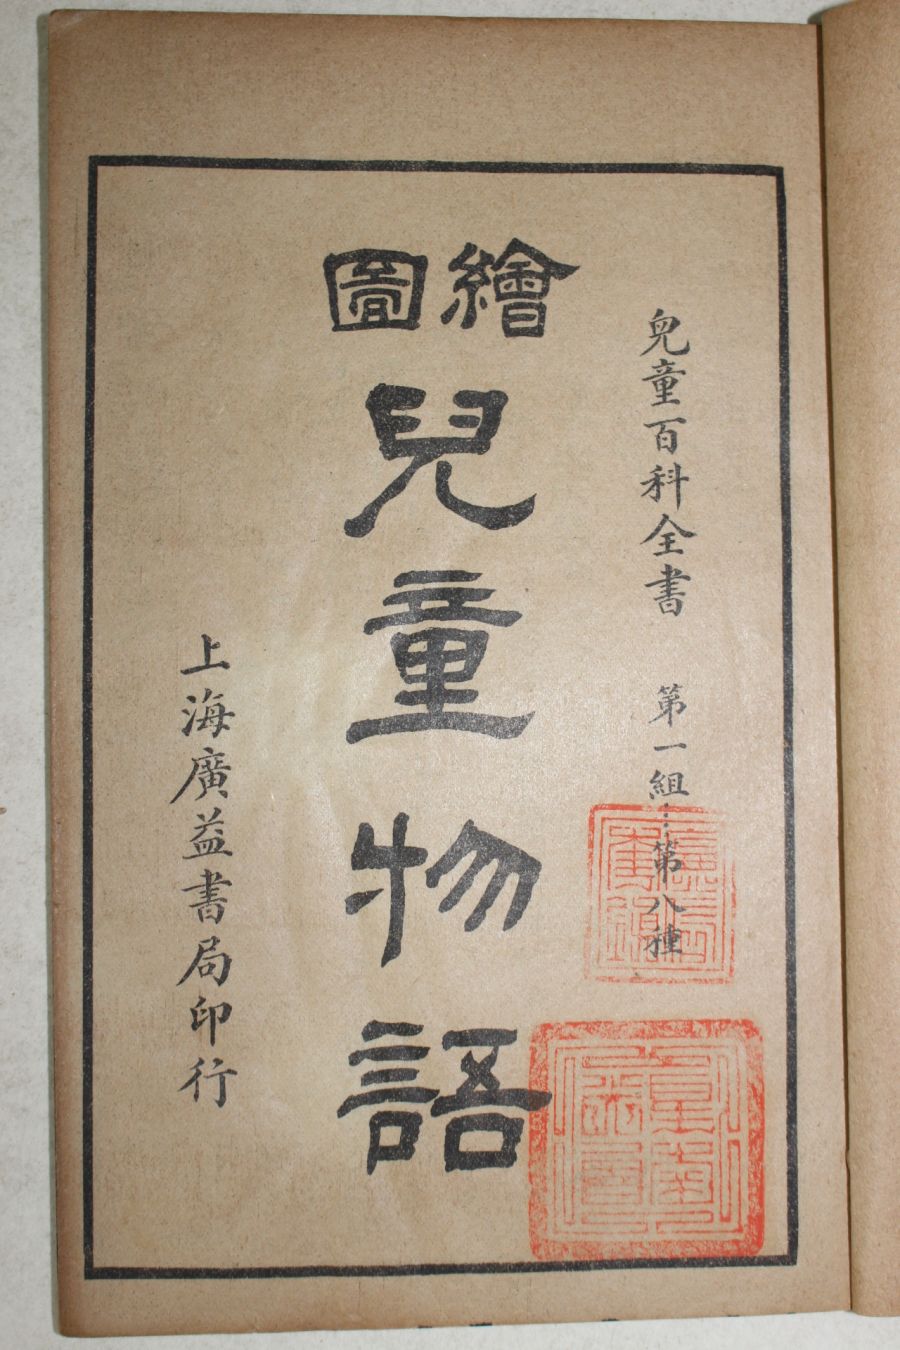 兒童百科全書 第一組…第八種
繪圖
兒童物語
上海廣益書局印行